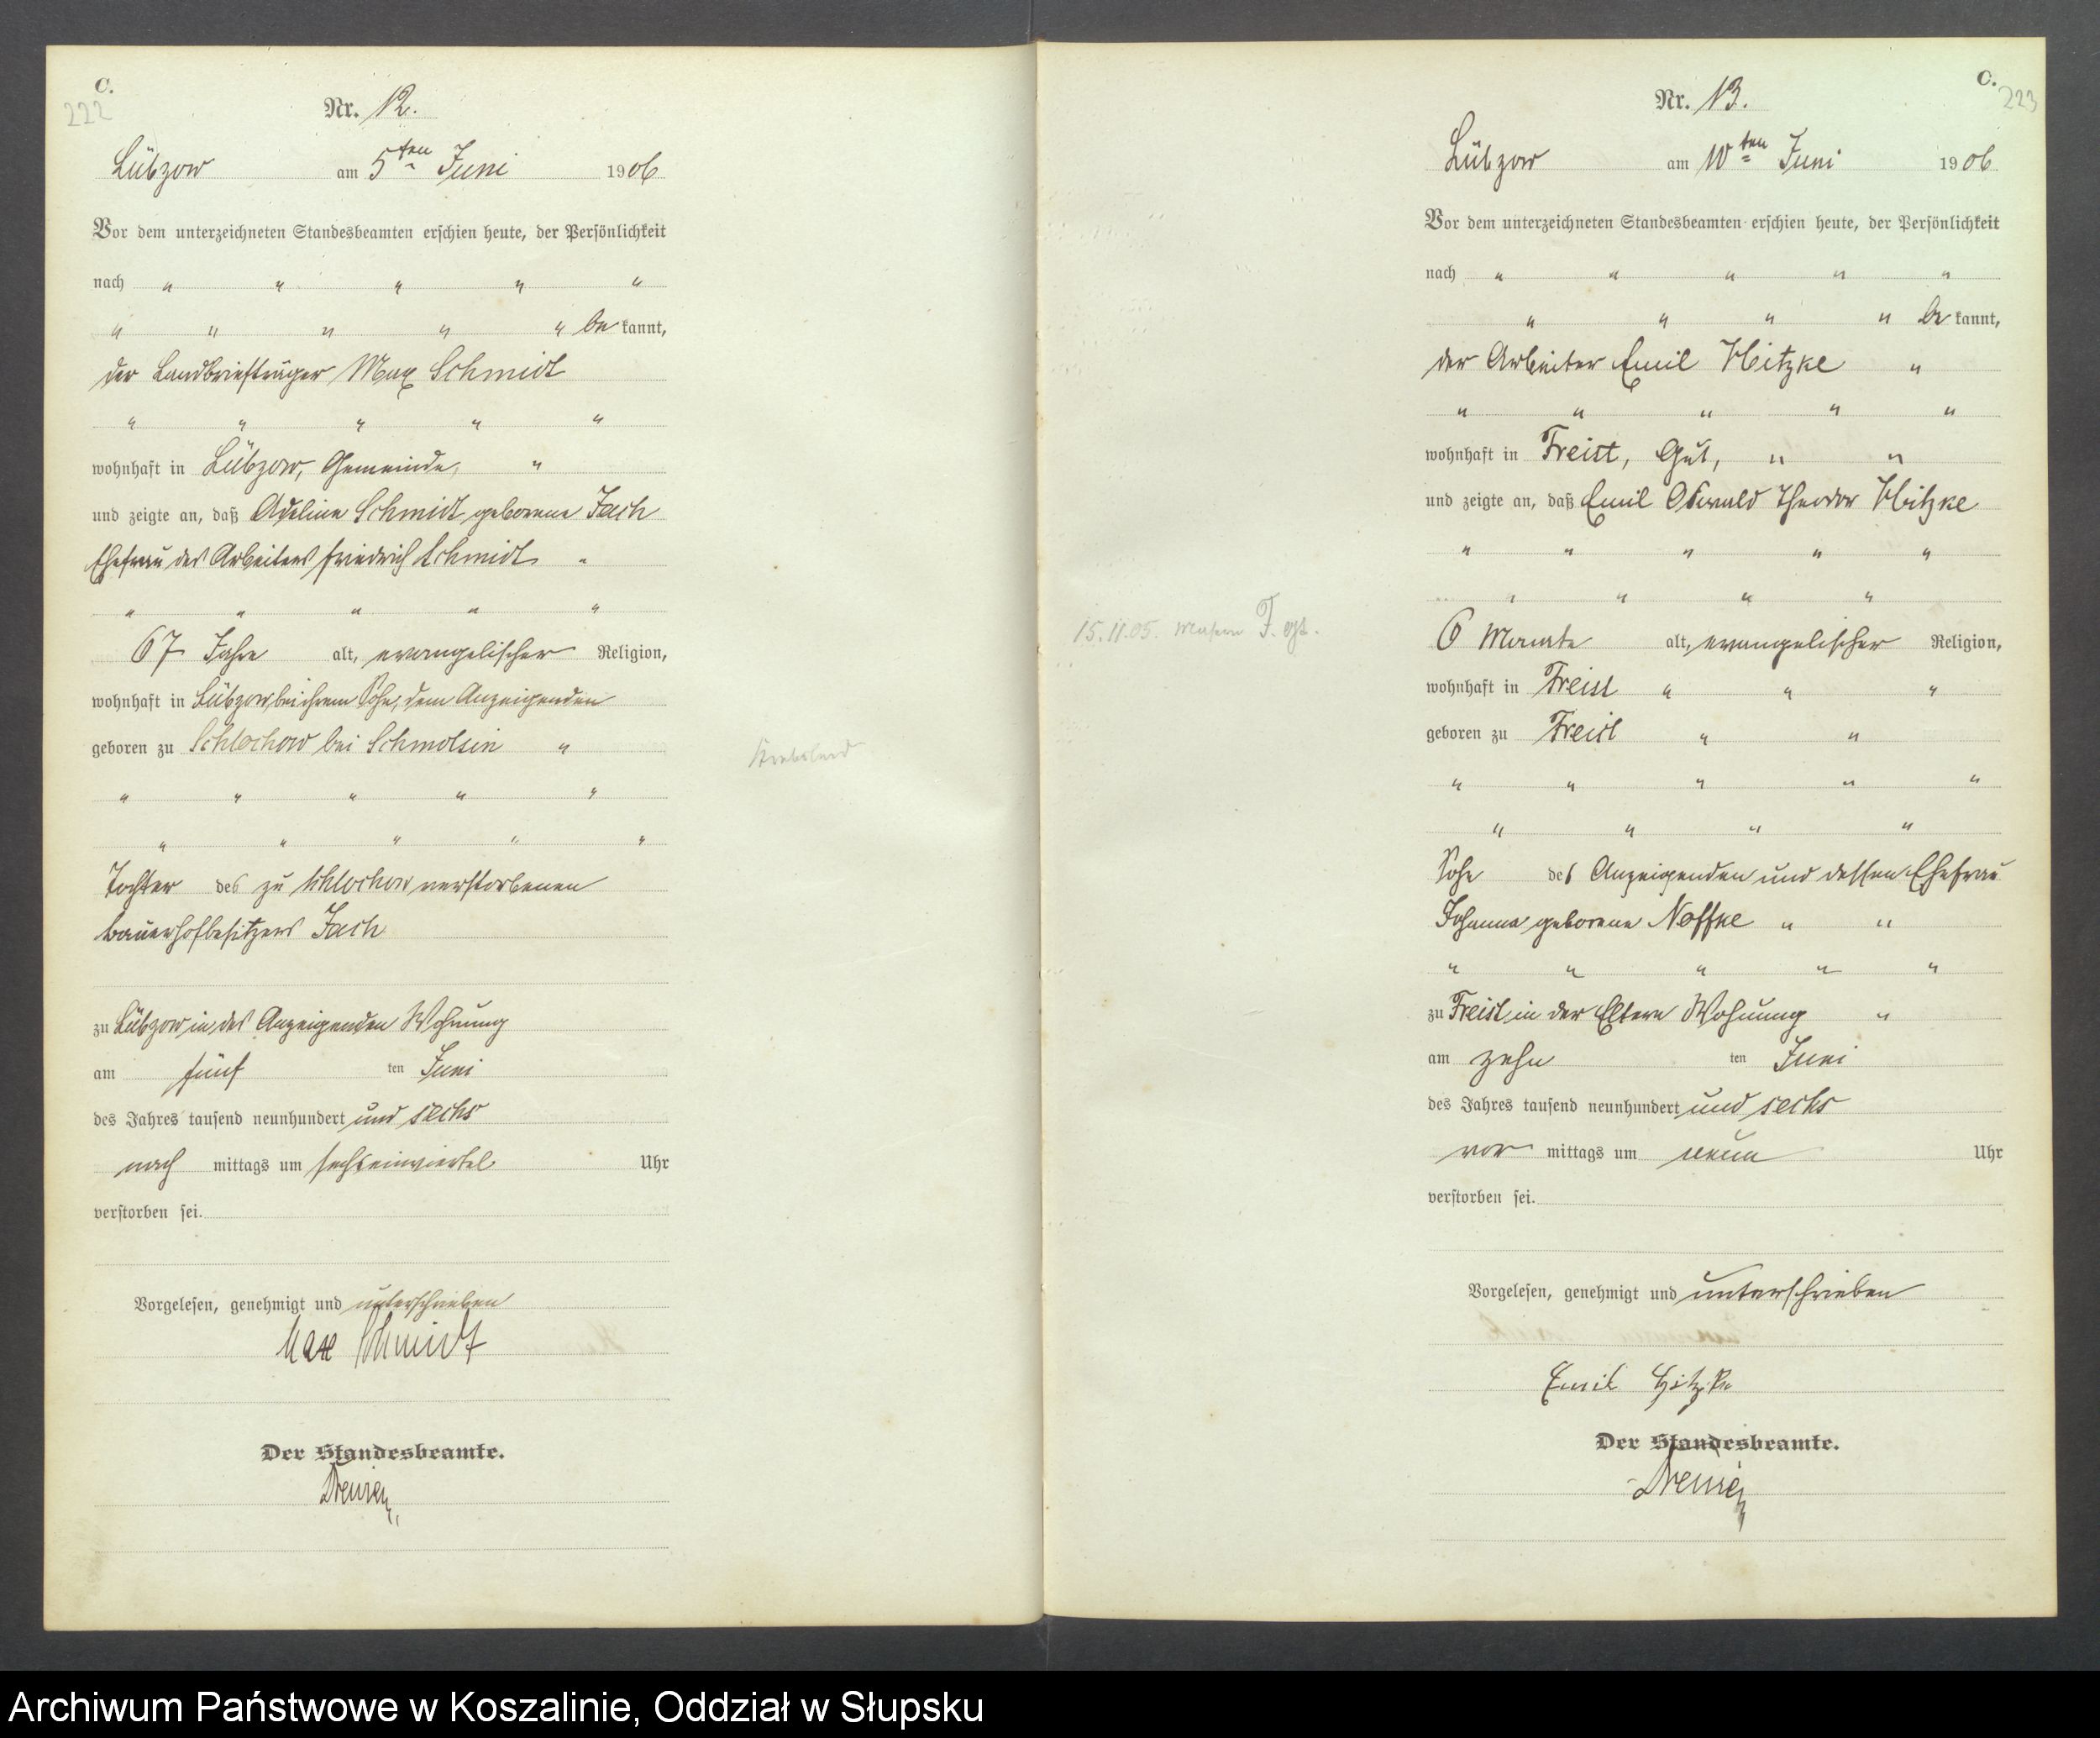 C.
222
Nr. 12.
Lübzow am 5ten Juni 1906
Vor dem unterzeichneten Standesbeamten erschien heute, der Persönlichkeit
nach " " " " "
" " " " " be kannt,
der Landbriefträger Max Schmidt
" " " " "
wohnhaft in Lübzow, Gemeinde, "
und zeigte an, daß Adeline Schmidt geborene Jach
Ehefrau des Arbeiters Friedrich Schmidt "
" " " " "
67 Jahre alt, evangelischer Religion,
wohnhaft in Lübzow, bei ihrem Sohn, dem Anzeigenden
geboren zu Schlochow bei Schmolsin "
" " " " "
" " " " "
Tochter des zu Schlochow verstorbenen
Bauerhofbesitzers Jach
zu Lübzow in des Anzeigenden Wohnung
am fünf ten Juni
des Jahres tausend neunhundert und sechs
nach mittags um sechseinviertel Uhr
verstorben sei.
Vorgelesen, genehmigt und unterschrieben
Max Schmidt
Der Standesbeamte.
C.
223
Nr. 13.
Lübzow am 10ten Juni 1906
Vor dem unterzeichneten Standesbeamten erschien heute, der Persönlichkeit
nach " " " " "
" " " " be kannt,
der Arbeiter Emil Hitzke "
" " " " "
wohnhaft in Freist, Gut, " "
und zeigte an, daß Emil Oswald Theodor Hitzke
" " " " "
" " " "
15.11.05. Masern
6 Monate alt, evangelischer Religion,
wohnhaft in Freist " " "
geboren zu Freist " "
" " " " "
" " " "
Sohn des Anzeigenden und dessen Ehefrau
Johanna geborene Noffke " "
" " " " "
zu Freist in der Eltern Wohnung "
am zehn ten Juni
des Jahres tausend neunhundert und sechs
vor mittags um neun Uhr
verstorben sei.
Vorgelesen, genehmigt und unterschrieben
Emil Hitzke
Der Standesbeamte.
Archiwum Państwowe w Koszalinie, Oddział w Słupsku